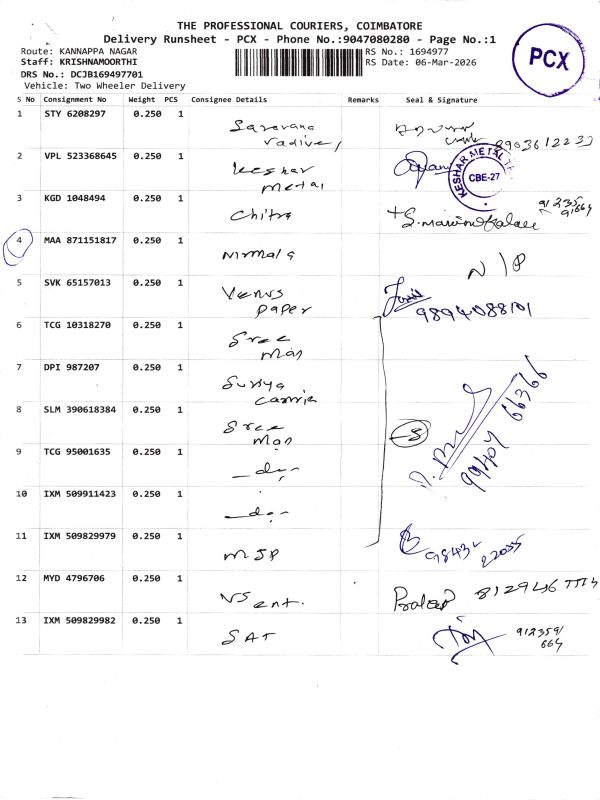 THE PROFESSIONAL COURIERS, COIMBATORE
Delivery Runsheet - PCX - Phone No.:9047080280 - Page No.:1
Route: KANNAPPA NAGAR RS No.: 1694977
Staff: KRISHNAMOORTHI RS Date: 06-Mar-2026
DRS No.: DCJB169497701
Vehicle: Two Wheeler Delivery
PCX
S No Consignment No Weight PCS Consignee Details Remarks Seal & Signature
1 STY 6208297 0.250 1 Saravana Vadivel 8903612233
2 VPL 523368645 0.250 1 Keshar Metal KESHAR METAL CBE-27
3 KGD 1048494 0.250 1 Chitra 91235 91664
4 MAA 871151817 0.250 1 Nirmala N/P
5 SVK 65157013 0.250 1 Venus Paper 9894088101
6 TCG 10318270 0.250 1 Sree Man
7 DPI 987207 0.250 1 Surya
8 SLM 390618384 0.250 1 Sree Man 99407 66366
9 TCG 95001635 0.250 1 -do-
10 IXM 509911423 0.250 1 -do-
11 IXM 509829979 0.250 1 MJP 98432 22055
12 MYD 4796706 0.250 1 VS ent.
13 IXM 509829982 0.250 1 SAT 9123591 664